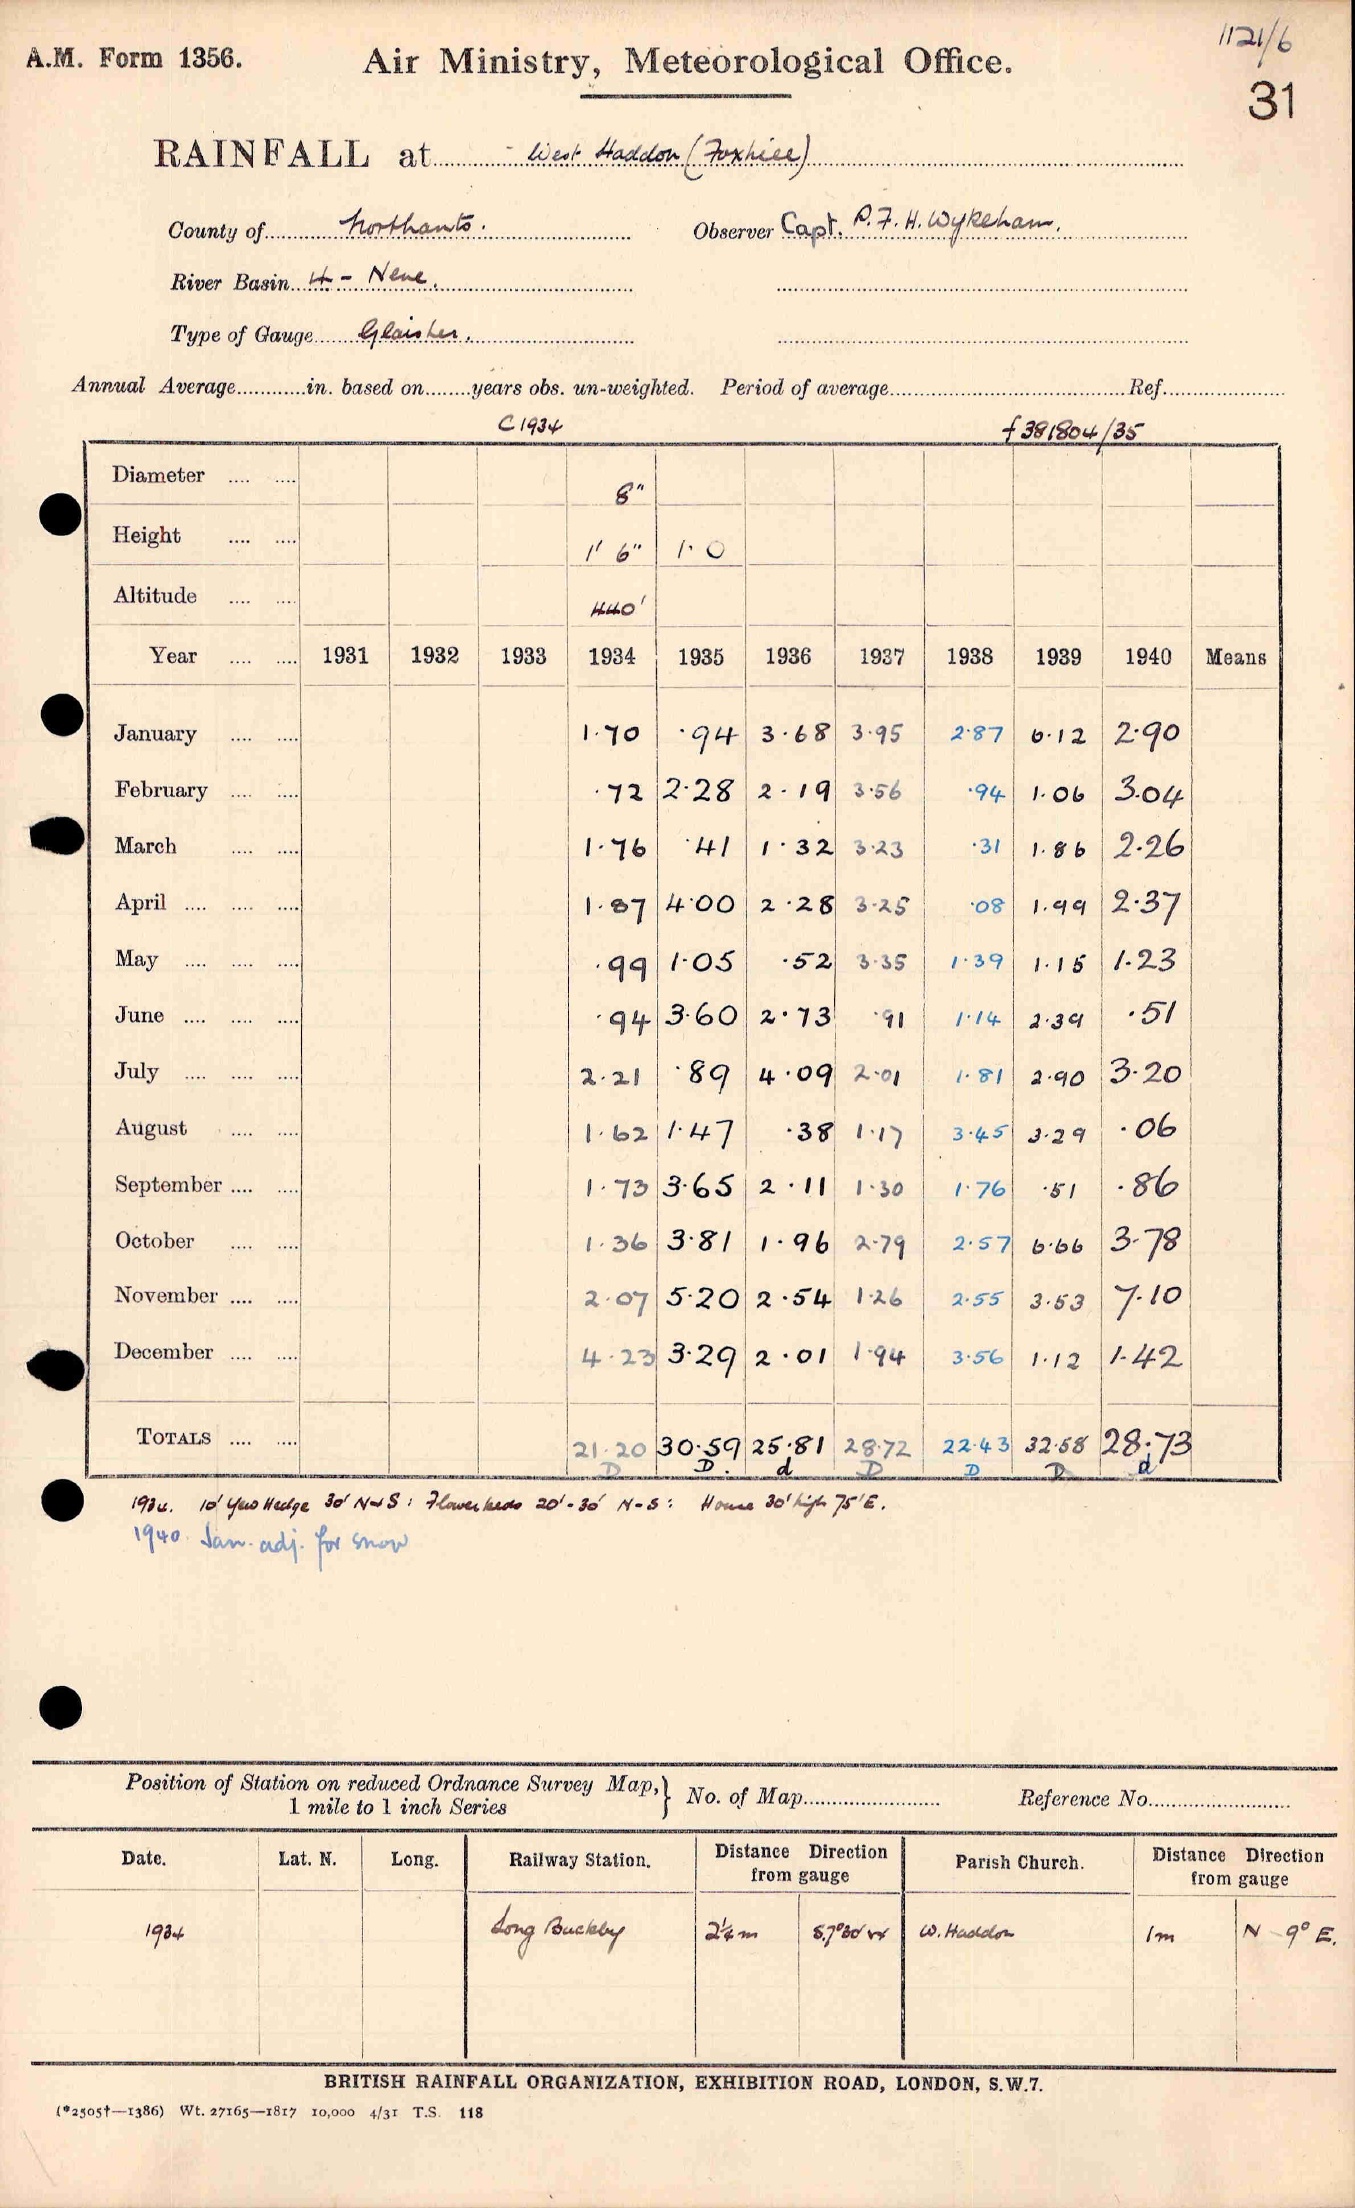 1121/6
A.M. Form 1356. Air Ministry, Meteorological Office.
31
RAINFALL at West Haddon (Foxhill)
County of Northants. Observer Capt. P.F.H. Wykeham.
River Basin 4 - Nene.
Type of Gauge Glaisher.
Annual Average in. based on years obs. un-weighted. Period of average Ref.
C 1934 f 381804/35
Diameter 8"
Height 1' 6" 1.0
Altitude 440'
Year 1931 1932 1933 1934 1935 1936 1937 1938 1939 1940 Means
January 1.70 .94 3.68 3.95 2.87 6.12 2.90
February .72 2.28 2.19 3.56 .94 1.06 3.04
March 1.76 .41 1.32 3.23 .31 1.86 2.26
April 1.87 4.00 2.28 3.25 .08 1.99 2.37
May .99 1.05 .52 3.35 1.39 1.15 1.23
June .94 3.60 2.73 .91 1.14 2.39 .51
July 2.21 .89 4.09 2.01 1.81 2.90 3.20
August 1.62 1.47 .38 1.17 3.45 3.29 .06
September 1.73 3.65 2.11 1.30 1.76 .51 .86
October 1.36 3.81 1.96 2.79 2.57 6.66 3.78
November 2.07 5.20 2.54 1.26 2.55 3.53 7.10
December 4.23 3.29 2.01 1.94 3.56 1.12 1.42
TOTALS 21.20 30.59 25.81 28.72 22.43 32.58 28.73
D D. d D D D d
1934. 10' Yew Hedge 30' N & S: Flower beds 20' - 30' N - S: House 30' high 75' E.
1940 Jan. adj. for snow
Position of Station on reduced Ordnance Survey Map, 1 mile to 1 inch Series } No. of Map Reference No.
Date. Lat. N. Long. Railway Station. Distance Direction from gauge Parish Church. Distance Direction from gauge
1934 Long Buckby 2¼ m S.7°30' W. Haddon 1 m N 9° E.
BRITISH RAINFALL ORGANIZATION, EXHIBITION ROAD, LONDON, S.W.7.
(*2505†—1386) Wt. 27165—1817 10,000 4/31 T.S. 118